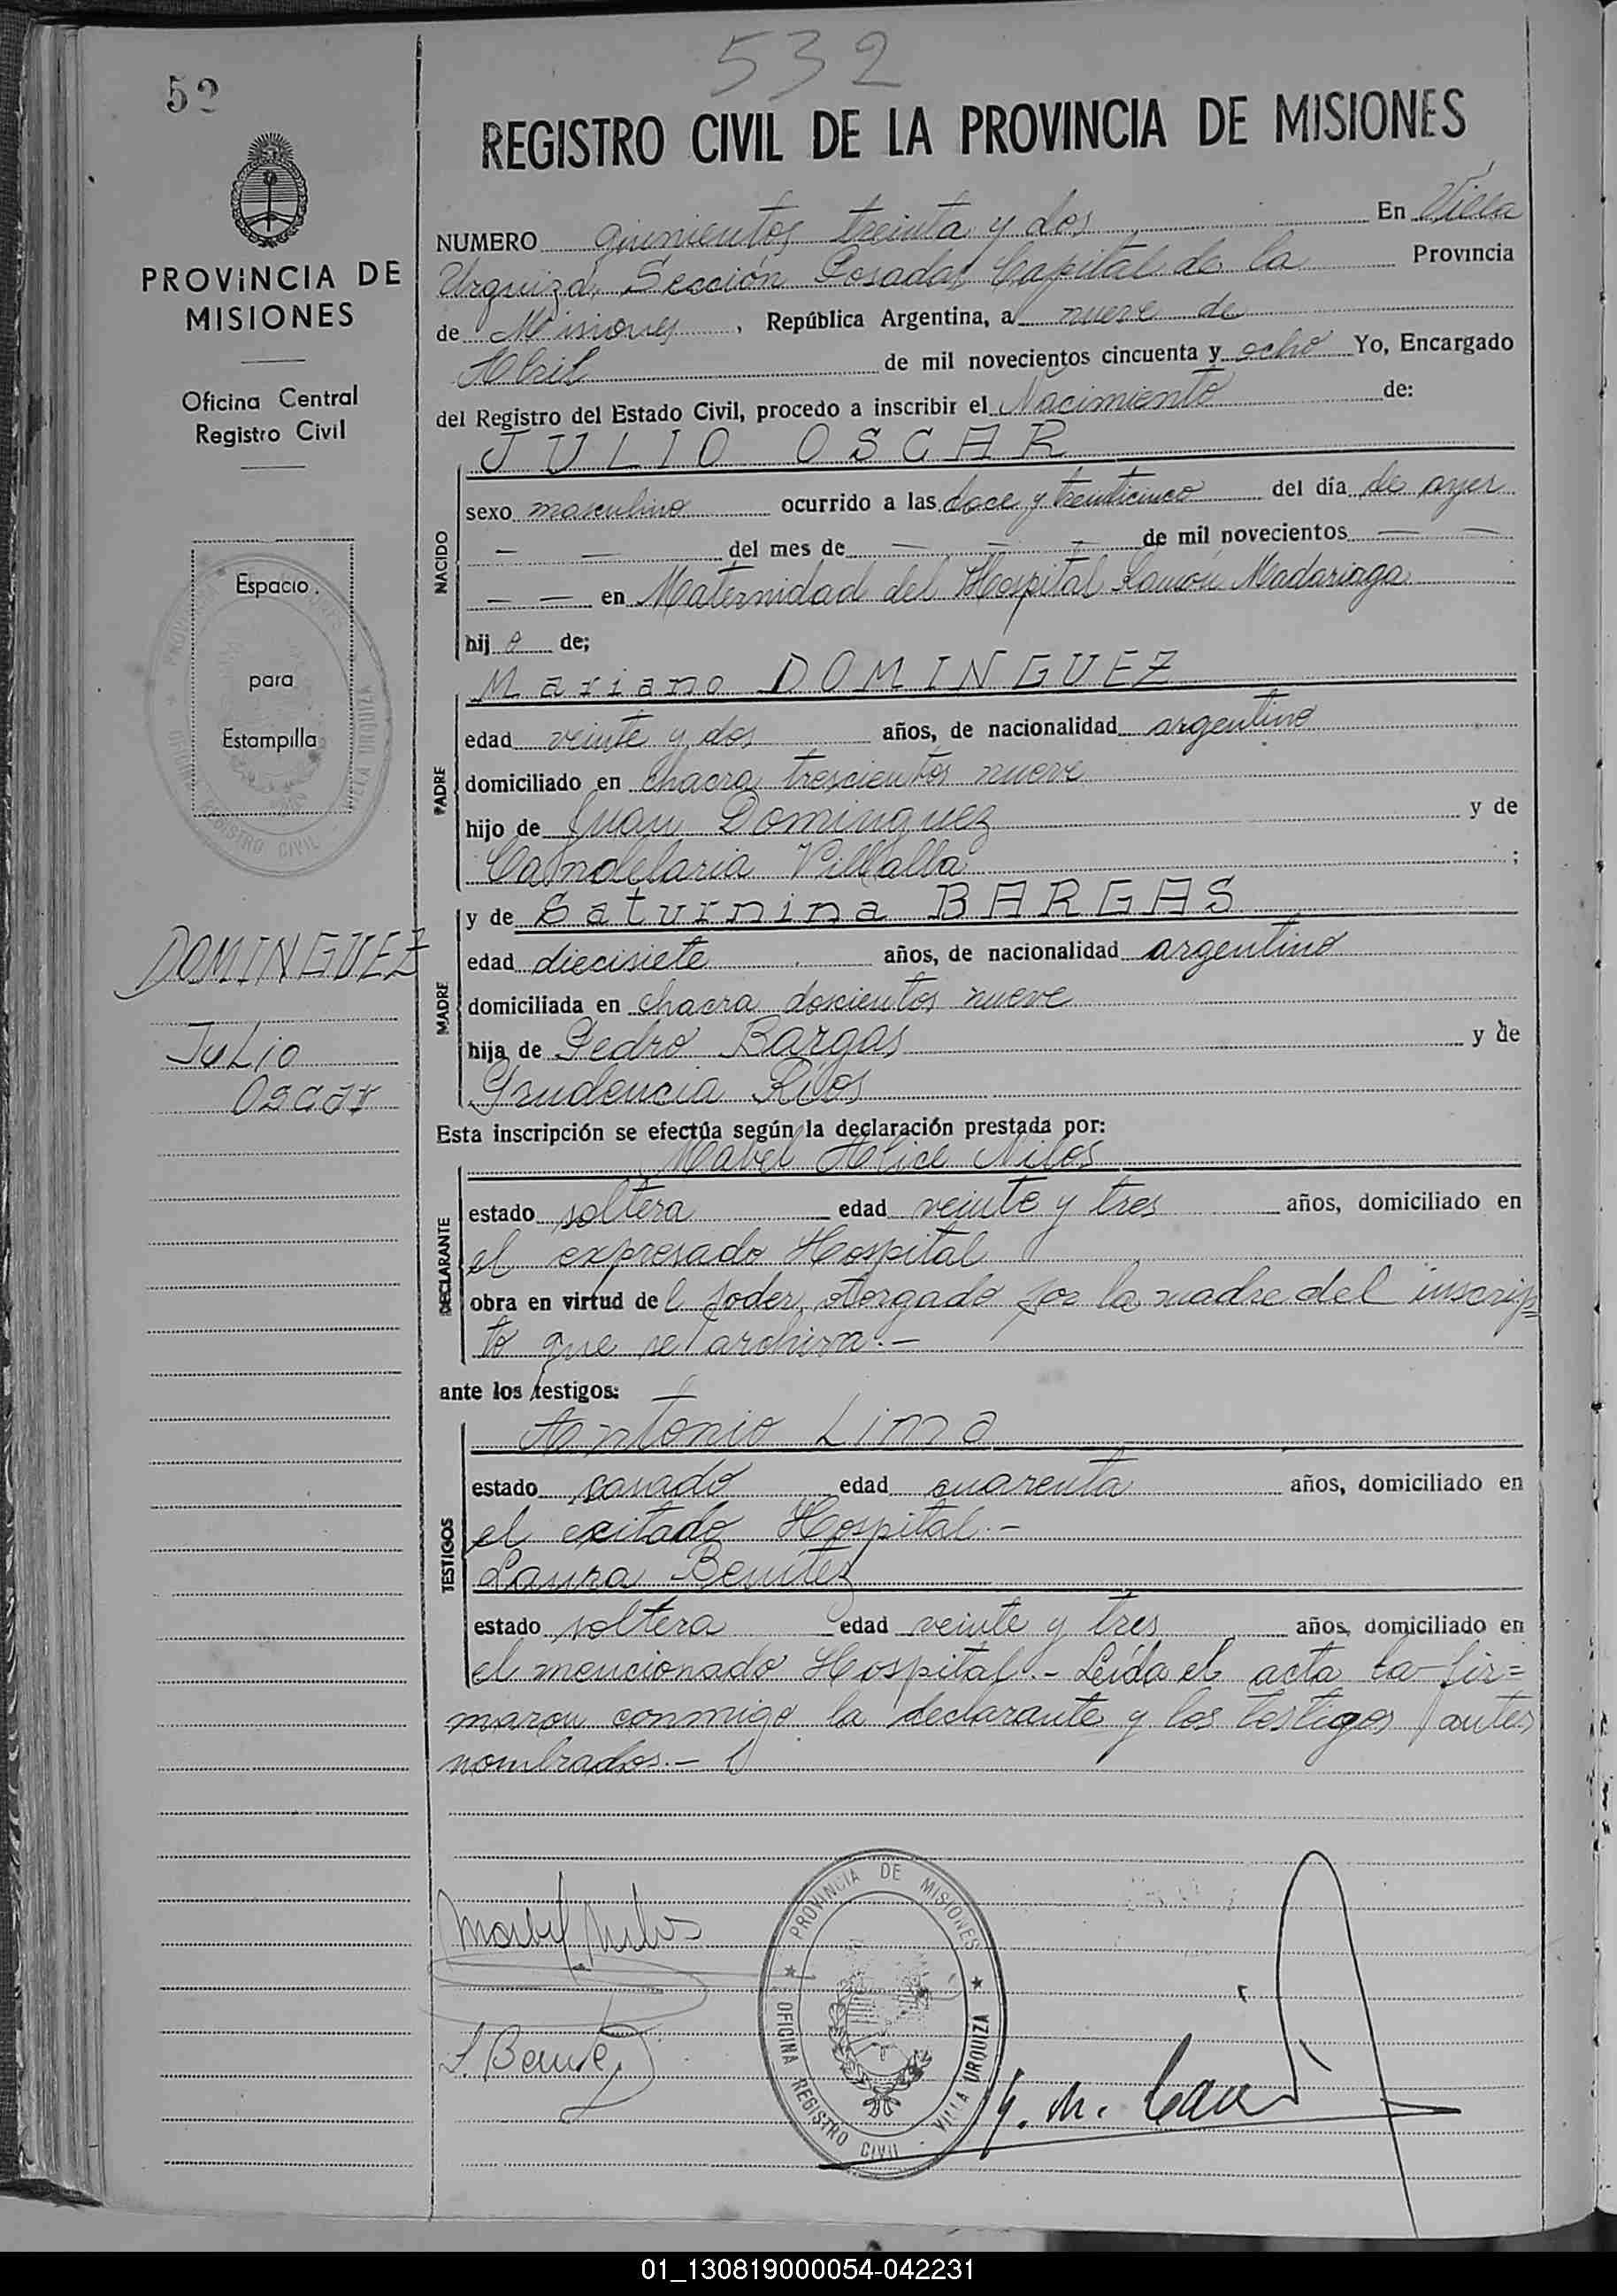 532
52
REGISTRO CIVIL DE LA PROVINCIA DE MISIONES
PROVINCIA DE
MISIONES
Oficina Central
Registro Civil
Espacio
para
Estampilla
DOMINGUEZ
Julio
Oscar
NUMERO quinientos treinta y dos En Villa
Urquiza, Sección Posadas Capital de la Provincia
de Misiones, República Argentina, a nueve de
Abril de mil novecientos cincuenta y ocho Yo, Encargado
del Registro del Estado Civil, procedo a inscribir el Nacimiento de:
JULIO OSCAR
NACIDO
sexo masculino ocurrido a las doce y treinticinco del día de ayer
— — del mes de — — — de mil novecientos — —
— — en Maternidad del Hospital Ramón Madariaga
hijo de;
Mariano DOMINGUEZ
PADRE
edad veinte y dos años, de nacionalidad argentino
domiciliado en chacra trescientos nueve
hijo de Juan Dominguez y de
Candelaria Villalla;
y de Saturnina BARGAS
MADRE
edad diecisiete años, de nacionalidad argentino
domiciliada en chacra doscientos nueve
hija de Pedro Bargas y de
Prudencia Rios
Esta inscripción se efectúa según la declaración prestada por:
Mabel Alice Nilos
DECLARANTE
estado soltera edad veinte y tres años, domiciliado en
el expresado Hospital
obra en virtud del poder otorgado por la madre del inscrip=
to que se archiva.—
ante los testigos:
Antonio Lima
TESTIGOS
estado casado edad cuarenta años, domiciliado en
el citado Hospital.—
Laura Benitez
estado soltera edad veinte y tres años, domiciliado en
el mencionado Hospital.— Leída el acta la fir=
maron conmigo la declarante y los testigos antes
nombrados.—
Mabel Nilos
L. Benitez
PROVINCIA DE MISIONES
OFICINA REGISTRO CIVIL - VILLA URQUIZA
01_130819000054-042231